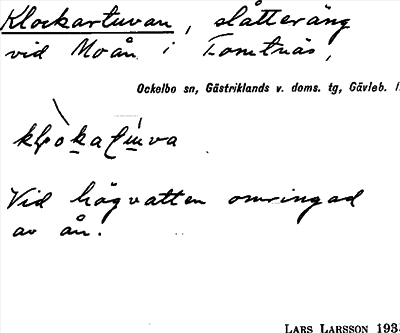 Klockartuvan, slåtteräng
vid Moån i Tomtnäs,
Ockelbo sn, Gästriklands v. doms. tg, Gävleb.
Vid högvatten omringad
av ån.
LARS LARSSON 193